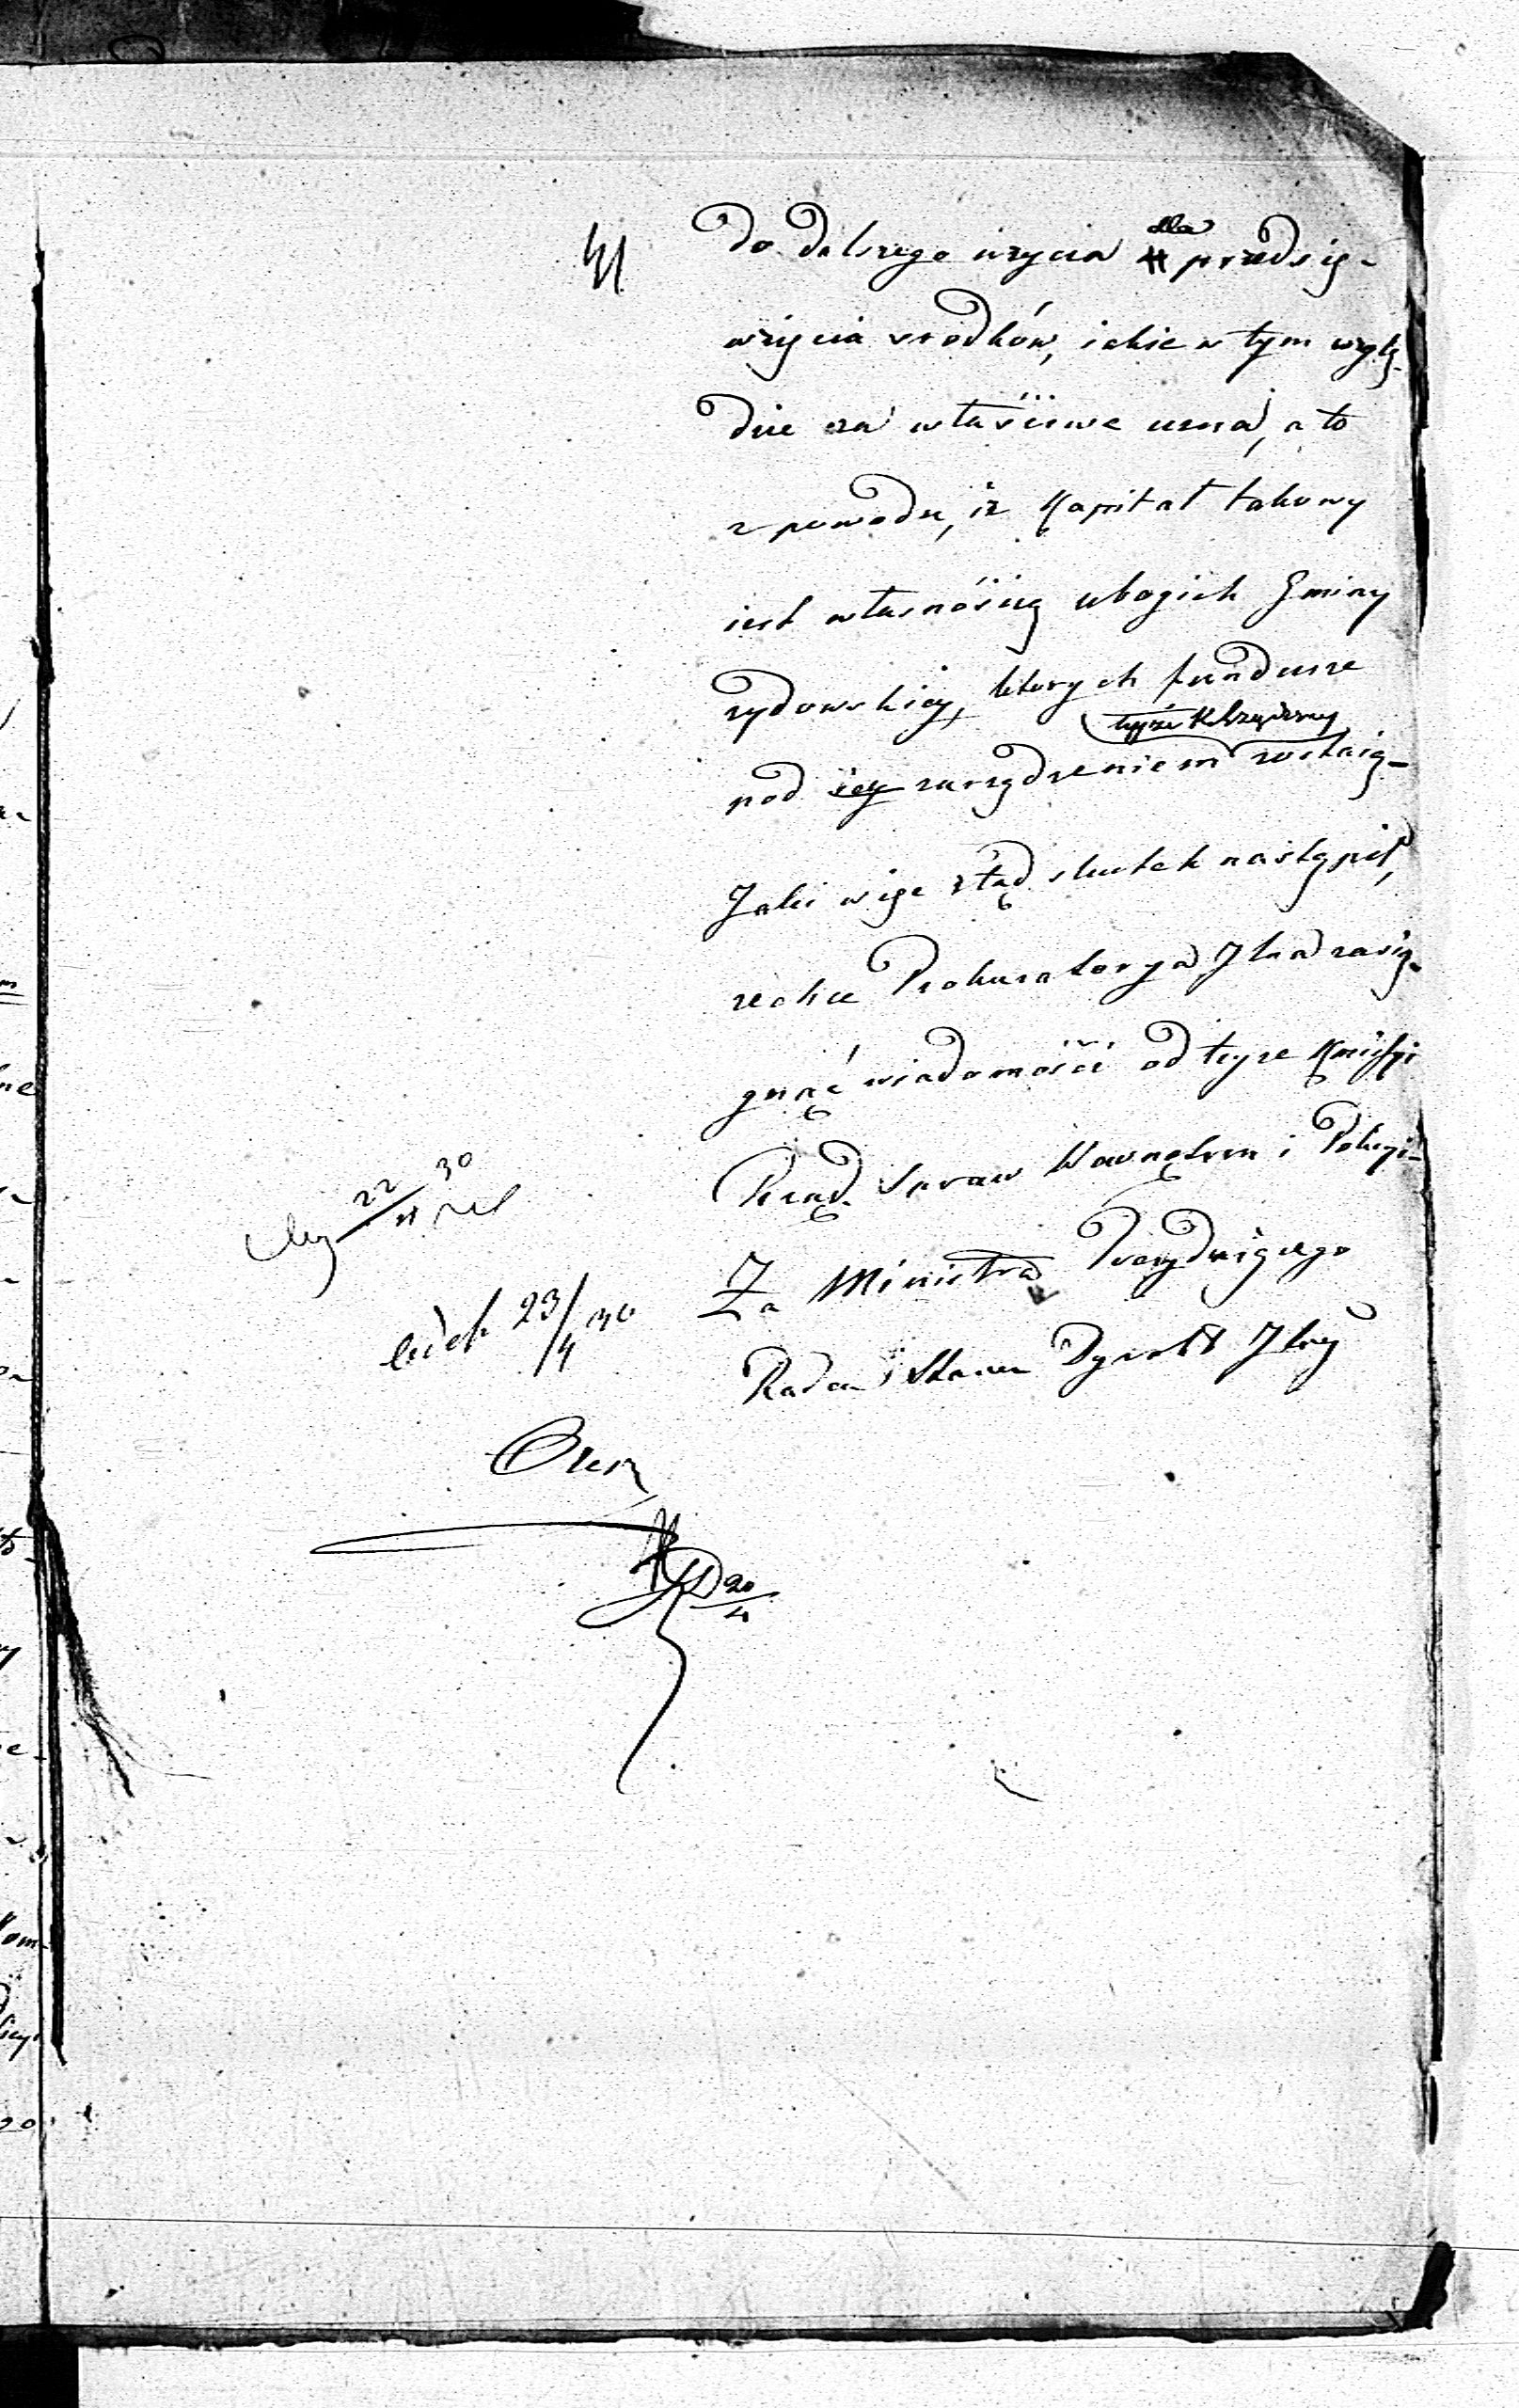 41
do dalszego użycia dla przedsię-
wzięcia srodków, iakie w tym wzglę-
dzie za właściwe uzna, a to
z powodu, iż Kapitał takowy
iest własnością ubogich Gminy
zydowskiey, ktorych fundusze
teyże K. Rządowey
pod iey zarządzeniem zostaią_
Jaki więc ztąd skutek nastąpił,
zechce Prokuratorya Jlna zasią-
gnąć wiadomości od teyże Kmissyi
Rząd. Spraw Wewnętrzn i Policyi_
Za Ministra Prezyduiącego
Radca Stanu Dyrektt Jlny
22/4 30
23/4 30
20/4